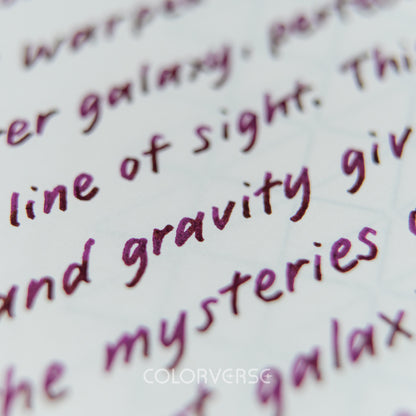 warped
er galaxy, perfe
line of sight. Thi
and gravity giv
he mysteries
t galax
COLORVERSE